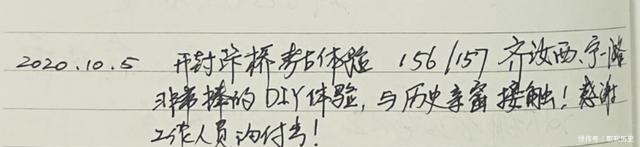 2020.10.5 开封陈桥考古体验 156/157 齐汝西、宁一
非常棒的DIY体验，与历史亲密接触！感谢
工作人员的付出！
快传号/歌歌历史